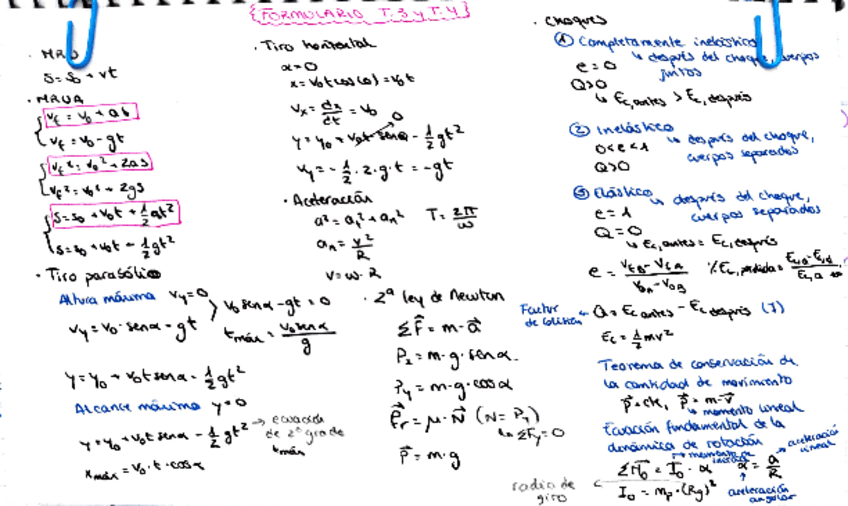 FORMULARIO T.3 y T.4
· MRU
S = S₀ + vt
· MRUA
v_f = v₀ + at
v_f = v₀ - gt
v_f² = v₀² + 2as
v_f² = v₀² + 2gs
S = S₀ + v₀t + 1/2 at²
S = S₀ + v₀t - 1/2 gt²
· Tiro parabólico
Altura máxima v_y = 0
v_y = v₀ · sen α - gt
v₀ sen α - gt = 0
t_máx = v₀ sen α / g
y = y₀ + v₀t sen α - 1/2 gt²
Alcance máximo y = 0
y = y₀ + v₀t sen α - 1/2 gt² → ecuación
de 2º grado
t_máx
x_máx = v₀ · t · cos α
· Tiro horizontal
α = 0
x = v₀t cos(0) = v₀t
v_x = dx/dt = v₀
y = y₀ + v₀t sen α - 1/2 gt²
0
v_y = - 1/2 · 2 · g · t = -gt
· Aceleración
a² = a_t² + a_n² T = 2π/ω
a_n = v²/R
v = ω · R
· 2ª ley de Newton
ΣF⃗ = m · a⃗
P_x = m · g · sen α
P_y = m · g · cos α
F⃗r = μ · N⃗ (N = P_y)
↳ ΣF_y = 0
P⃗ = m · g
· Choques
① Completamente inelástico
↳ después del choque, cuerpos
juntos
e = 0
Q > 0
↳ Ec, antes > Ec, después
② Inelástico
↳ después del choque,
cuerpos separados
0 < e < 1
Q > 0
③ Elástico
↳ después del choque,
cuerpos separados
e = 1
Q = 0
↳ Ec, antes = Ec, después
Factor
de colisión
Q = Ec antes - Ec después (J)
Ec = 1/2 mv²
Teorema de conservación de
la cantidad de movimiento
p⃗ = cte, p⃗ = m · v⃗
↳ momento lineal
Ecuación fundamental de la
dinámica de rotación
→ momento de
inercia
aceleración
lineal
ΣM⃗₀ = I₀ · α α = a/R
aceleración
angular
radio de
giro
I₀ = m_p · (Rg)²